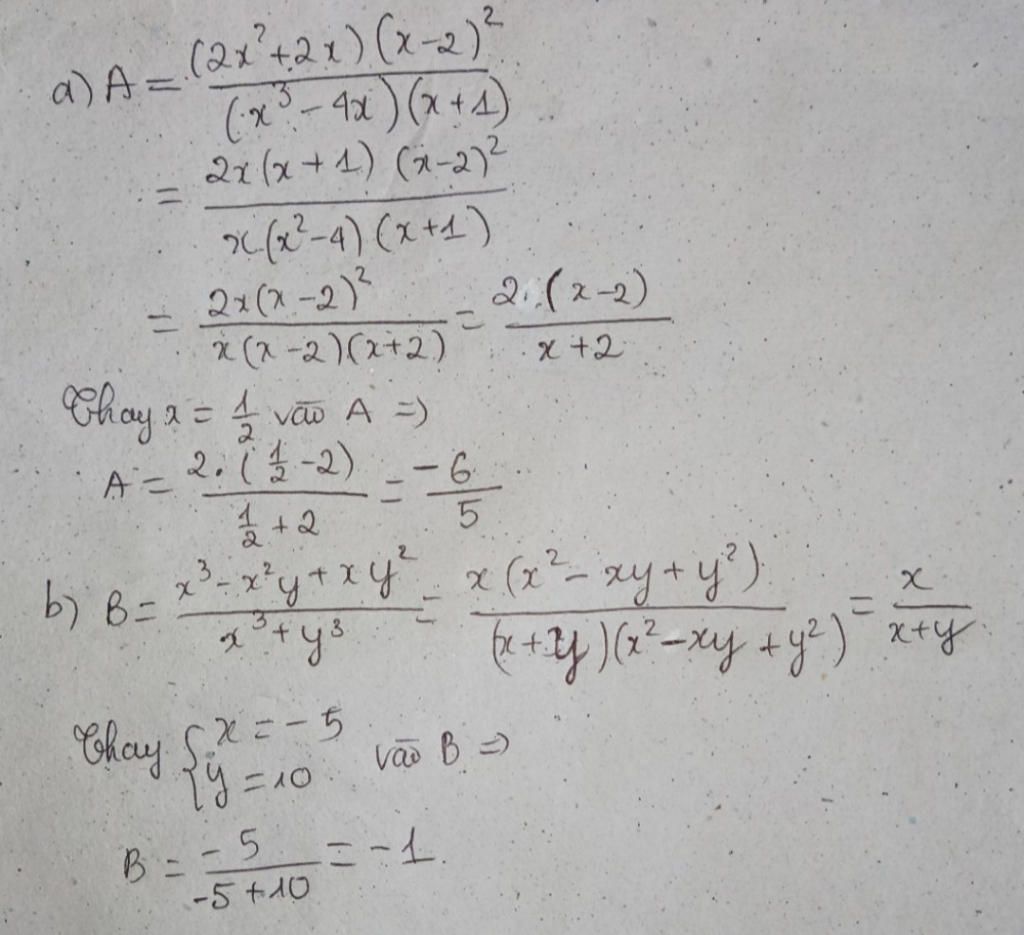 a) A = (2x²+2x)(x-2)² / (x³-4x)(x+1)
= 2x(x+1)(x-2)² / x(x²-4)(x+1)
= 2x(x-2)² / x(x-2)(x+2) = 2.(x-2) / x+2
Thay x = 1/2 vào A =>
A = 2.(1/2-2) / 1/2+2 = -6/5
b) B = x³-x²y+xy² / x³+y³ = x(x²-xy+y²) / (x+y)(x²-xy+y²) = x / x+y
Thay { x = -5
y = 10 vào B =>
B = -5 / -5+10 = -1.